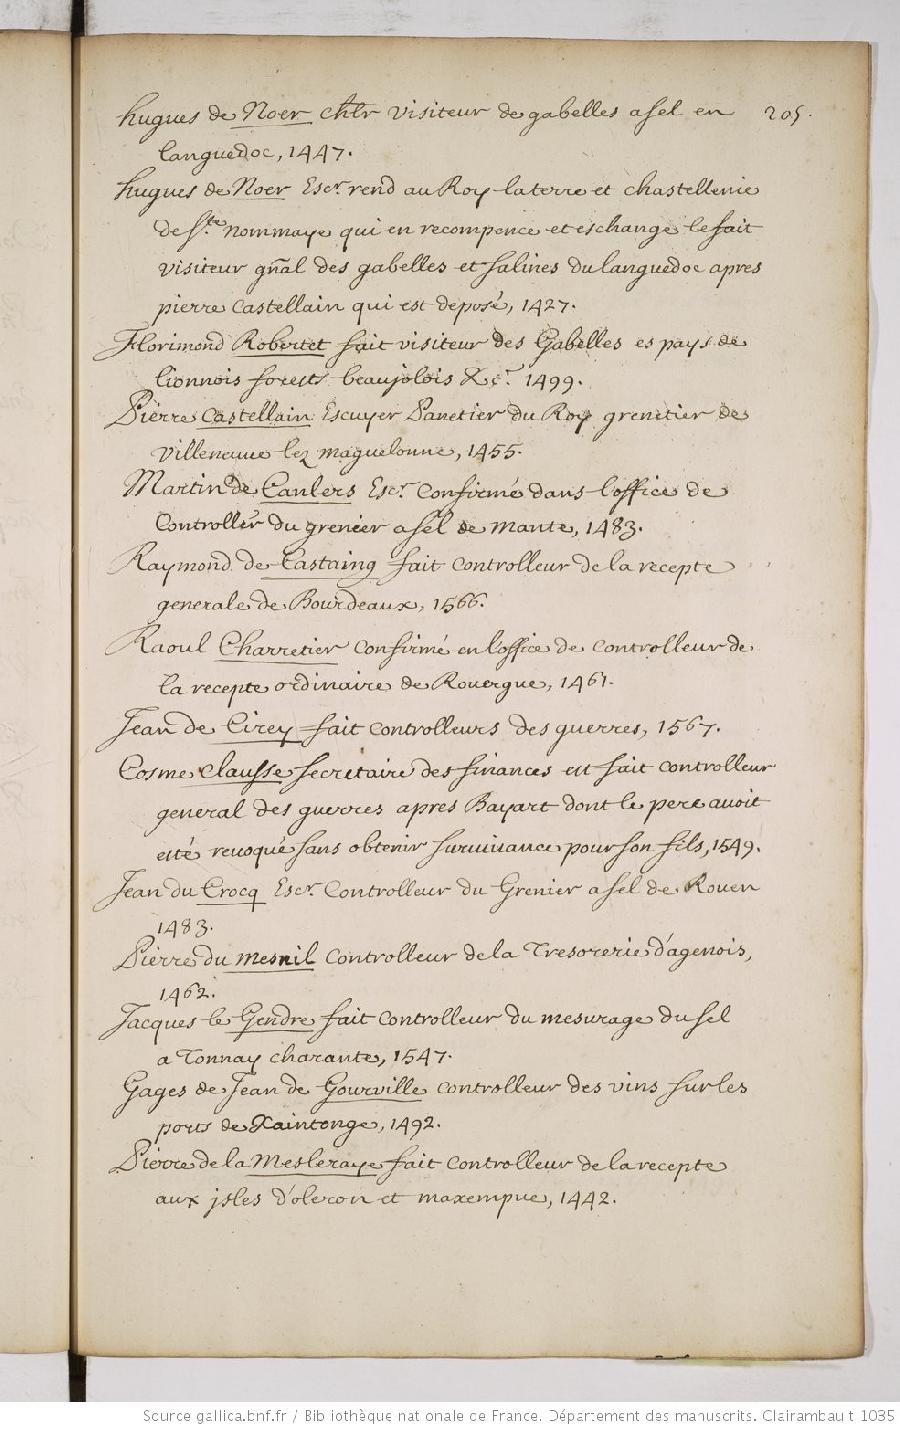 hugues de Noer chlr visiteur de gabelles a sel en 205.
languedoc, 1447.
hugues de Noer Escr. rend au Roy la terre et chastellenie
de Ste. nommaye qui en recompence et eschange le fait
visiteur gnal des gabelles et salines du languedoc apres
pierre Castellain qui est deposé, 1427.
Florimond Robertet fait visiteur des Gabelles es pays de
lionnois forests beaujolois &c. 1499.
Pierre Castellain Escuyer Panetier du Roy grenetier de
Villeneuve lez maguelonne, 1455.
Martin de Canlers Escr. Confirmé dans l'office de
Controller du grenier a sel de Mante, 1483.
Raymond de Castaing fait Controlleur de la recepte
generale de Bourdeaux, 1566.
Raoul Charretier Confirmé en l'office de Controlleur de
la recepte ordinaire de Rouergue, 1461.
Jean de Cirey fait Controlleurs des guerres, 1567.
Cosme Clausse secretaire des finances est fait Controlleur
general des guerres apres Bayart dont le pere avoit
esté revoqué sans obtenir survivance pour son fils, 1549.
Jean du Crocq Escr. Controlleur du Grenier a sel de Rouen
1483.
Pierre du mesnil Controlleur de la Tresorerie d'agenois,
1462.
Jacques le Gendre fait Controlleur du mesurage du sel
a Tonnay charante, 1547.
Gages de Jean de Gourville Controlleur des vins sur les
ports de Xaintonge, 1492.
Pierre de la Mesleraye fait Controlleur de la recepte
aux isles d'oleron et maxempne, 1442.
Source gallica.bnf.fr / Bibliothèque nationale de France. Département des manuscrits. Clairambault 1035